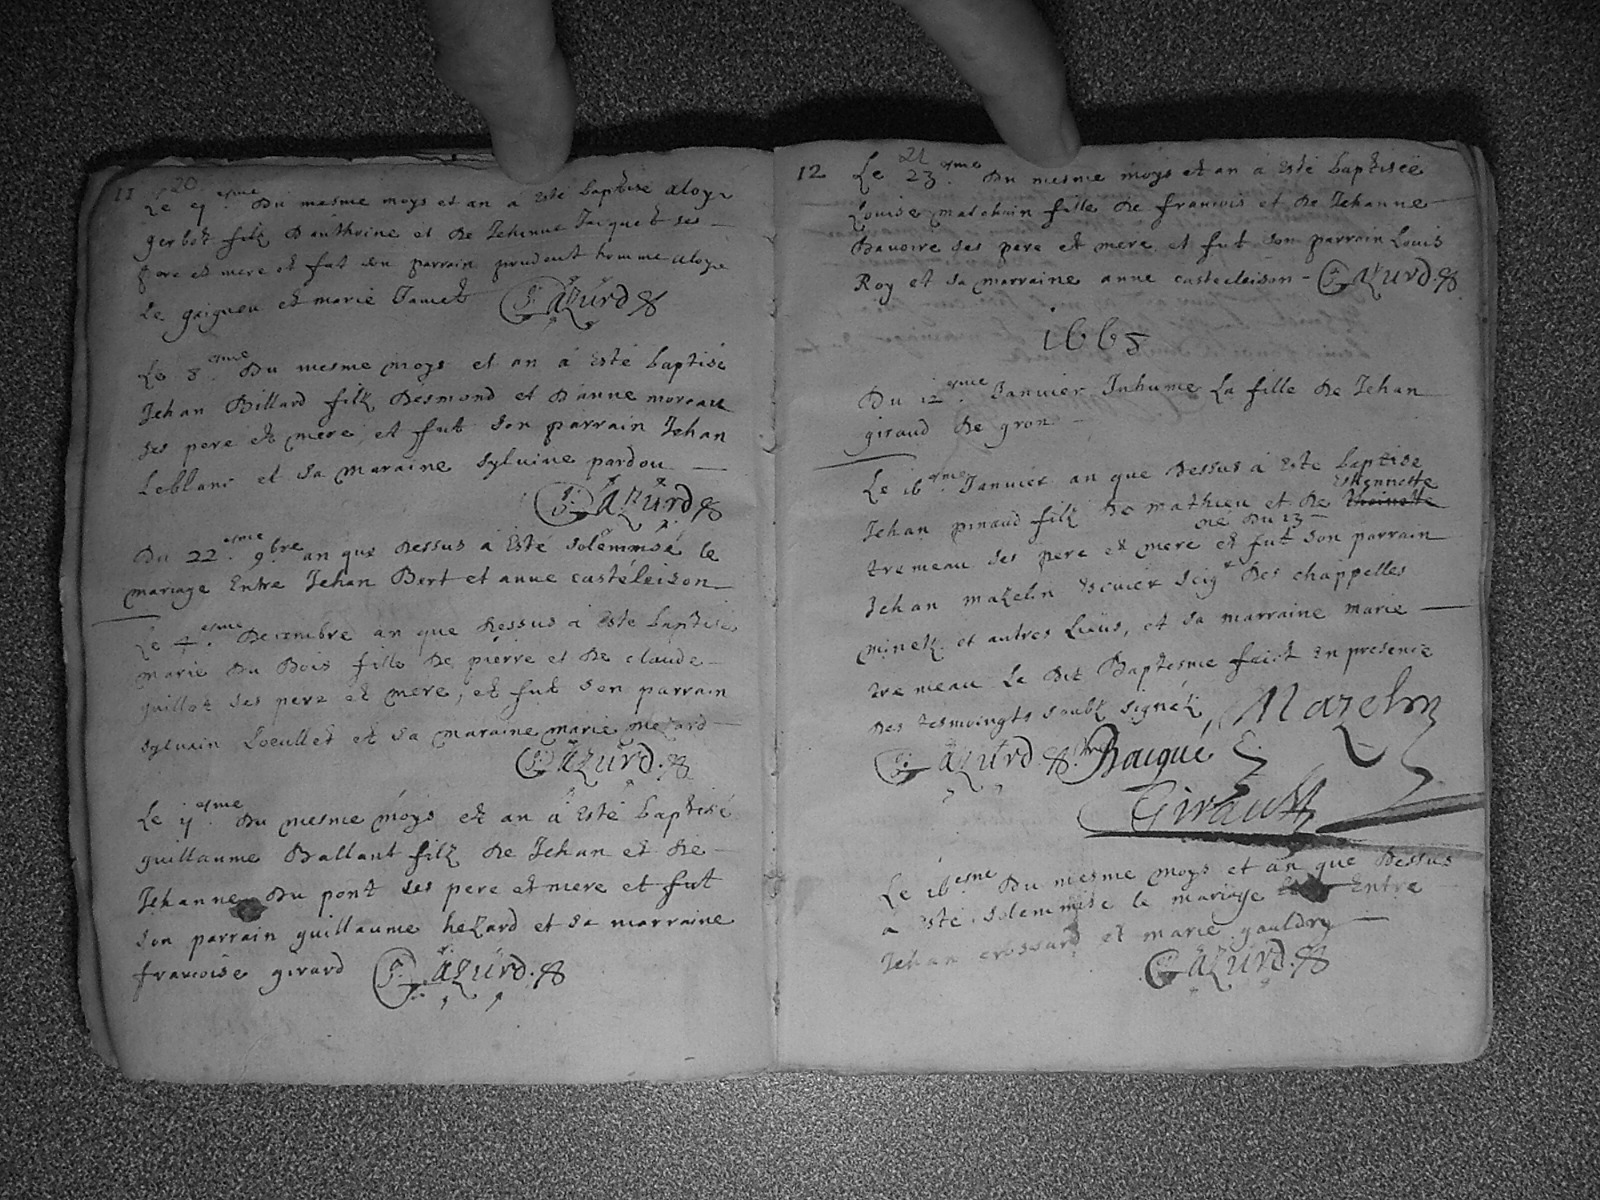 11 20
Le 7 esme Du mesme moys et an a Esté baptisé aloys
gerbot filz Danthoine et de Jehanne Jacquet ses
pere et mere et fut son parrain prudent homme aloys
Le gaigneu et marie Jamet S. azurd
Le 8 esme Du mesme moys et an a Esté baptisé
Jehan Billard filz Desmond et Danne moreau
ses pere et mere, et fut son parrain Jehan
Leblanc et sa maraine sylvine pardou
S. azurd
Du 22 esme 9bre an que dessus a Esté solemnisé le
mariage Entre Jehan Bert et anne castéleison
Le 4 esme Decembre an que dessus a Esté baptisé
marie Du Bois fille de pierre et de claude
guillot ses pere et mere, et fut son parrain
sylvain Loeullet et sa maraine marie mezard
S. azurd.
Le 7 esme Du mesme moys et an a Esté baptisé
guillaume Ballant filz de Jehan et de
Jehanne Du pont ses pere et mere et fut
son parrain guillaume hezard et sa marraine
francoise girard S. azurd.
12 21
Le 23 esme Du mesme moys et an a Esté baptiseé
Louise malchuin fille de francois et de Jehanne
Bavoire ses pere et mere et fut son parrain Louis
Roy et sa marraine anne casteleison - S. azurd.
1665
Du 12 esme Janvier Inhumé La fille de Jehan
giraud de gron
Le 16 esme Janvier an que dessus a Este baptise
Esthennette
Jehan pinaud filz de mathieu et de thoinette
né du 13
tremeau ses pere et mere et fut son parrain
Jehan mazelin Escuier seigr des chappelles
minetz et autres Lieus, et sa marraine marie
tremeau Le dit Baptesme faict en presence
des tesmoingts soubz signéz, Mazelin
S. azurd. Bacqué
Girault
Le 16 esme Du mesme moys et an que dessus
a esté solemnisé le mariage Entre
Jehan crossard et marie gauldry
S. azurd.